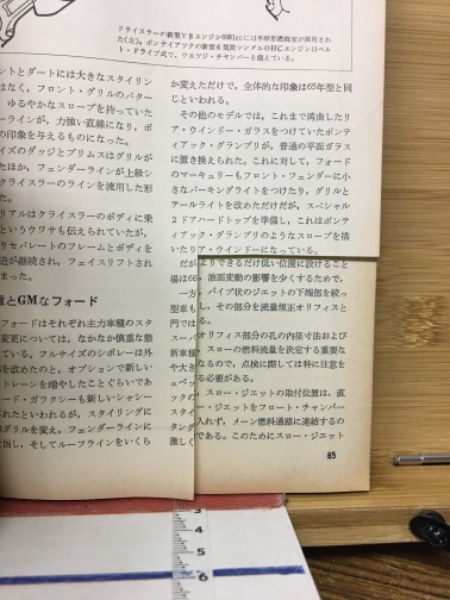 クライスラーの新型V8エンジン6981ccには半球形燃焼室が採用され
た(左)。ポンティアックの新型6気筒シングルOHCエンジンはベル
ト・ドライブ式で、ウエッジ・チャンバーを備えている。
ントとダートには大きなスタイリン
はなく，フロント・グリルのパター
ゆるやかなスロープを持っていた
ーラインが，力強い直線になり，ボ
の印象を与えるものになった。
イズのダッジとプリムスはグリルが
たほか，フェンダーラインが上級シ
クライスラーのラインを流用した形
た。
リアルはクライスラーのボディに乗
というウワサも伝えられていたが，
りセパレートのフレームとボディを
造が継続され，フェイスリフトされ
まった。
重とGMなフォード
フォードはそれぞれ主力車種のスタ
変更については，なかなか慎重な態
ている。フルサイズのシボレーは外
を改めたのと，オプションで新しい
トレーンを増やしたことぐらいであ
ード・ギャラクシーも新しいシャシー
されたといわれるが，スタイリングに
はグリルを変え，フェンダーラインに
を出し，そしてルーフラインをいくら
か変えただけで，全体的な印象は65年型と同
じといわれる。
その他のモデルでは，これまで湾曲したリ
ア・ウインドー・ガラスをつけていたポンテ
ィアック・グランプリが，普通の平面ガラス
に置き換えられた。これに対して，フォード
のマーキュリーもフロント・フェンダーに小
さなパーキングライトをつけたり，グリルと
テールライトを改めただけだが，スペシャル
2ドアハードトップを準備し，これはポンテ
ィアック・グランプリのようなスロープを描
いたリア・ウインドーになっている。
だが
場は66
一方
型車も
門では
スーパ
新車種
や大き
ェベッ
ックの
スタイ
タング
激しく
よりできるだけ低い位置に設けること
，油面変動の影響を少くするためで，
，パイプ状のジエットの下端部を絞っ
し，その部分を流量規正オリフィスと
る。
オリフィス部分の孔の内径寸法および
，スローの燃料流量を決定する重要な
なるので，点検に際しては特に注意を
る必要がある。
，スロー・ジエットの取付位置は，直
ー・ジエットをフロート・チャンバー
入れず，メーン燃料通路に連結するの
である。このためにスロー・ジエット
65
3
4
5
6